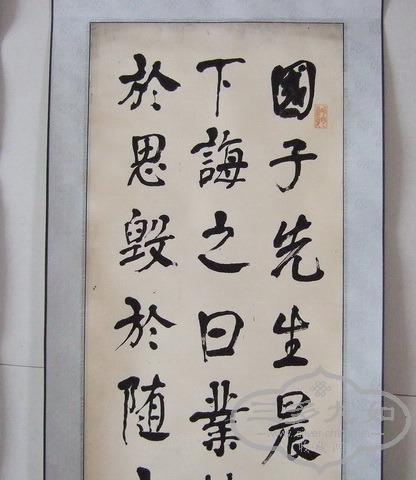 國子先生晨
下誨之曰業
於思毀於随